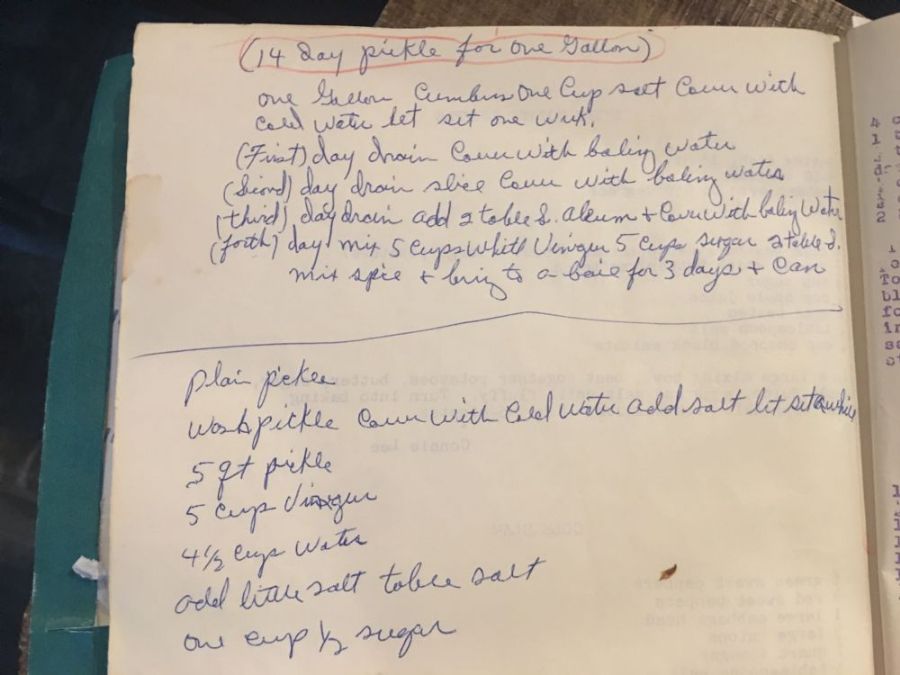 (14 day pickle for one Gallon)
one Gallon Cumbers One Cup salt Cover With
Cold Water let set one week.
(First) day drain Cover With boling water
(Second) day drain slice Cover With boling water
(third) day drain add 2 table S. Aleum + Cover With boling Water
(forth) day mix 5 Cups White Viniger 5 Cups sugar 2 table S.
mix spice + bring to a boil for 3 days + Can
plain pickle
Wash pickle Cover With Cold Water add salt let set a while
5 qt pickle
5 Cups Viniger
4 1/2 Cups Water
add little salt table salt
one cup 1/2 sugar